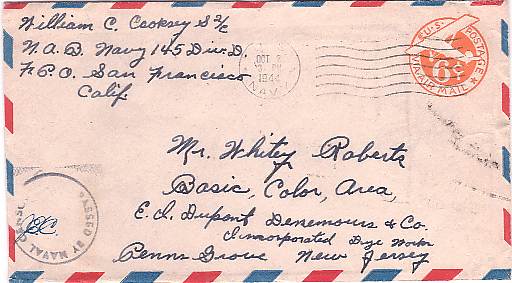 William C. Cooksey S 2/c
N.A.B. Navy 145 Div. D,
F.P.O. San Francisco,
Calif.
OCT 2
PM
1944
NAVY
U.S. POSTAGE
6¢
VIA AIR MAIL
Mr. Whitey Roberts
Basic, Color, Area,
E. I. Dupont Denemours & Co.
Incorporated Dye Works
Penns Grove New Jersey
PASSED BY NAVAL CENSOR